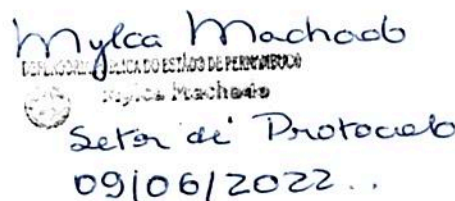 Mylca Machado
DEFENSORIA PÚBLICA DO ESTADO DE PERNAMBUCO
Mylca Machado
Setor de Protocolo
09/06/2022..